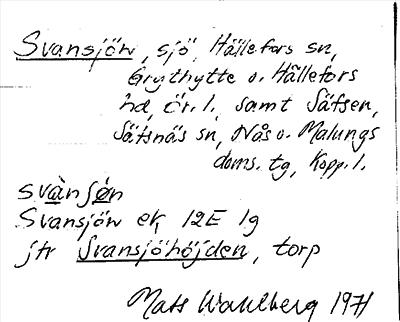 Svansjön, sjö, Hällefors sn,
Grythytte o. Hällefors
hd, Ör. l., samt Säfsen,
Säfsnäs sn, Nås o. Malungs
doms. tg, Kopp. l.
svànsǿn
Svansjön ek, 12E 1g
jfr Svansjöhöjden, torp
Mats Wahlberg 1971